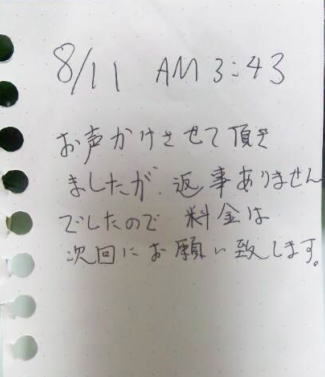 8/11 AM 3:43
お声かけさせて頂き
ましたが、返事ありません
でしたので 料金は
次回にお願い致します。